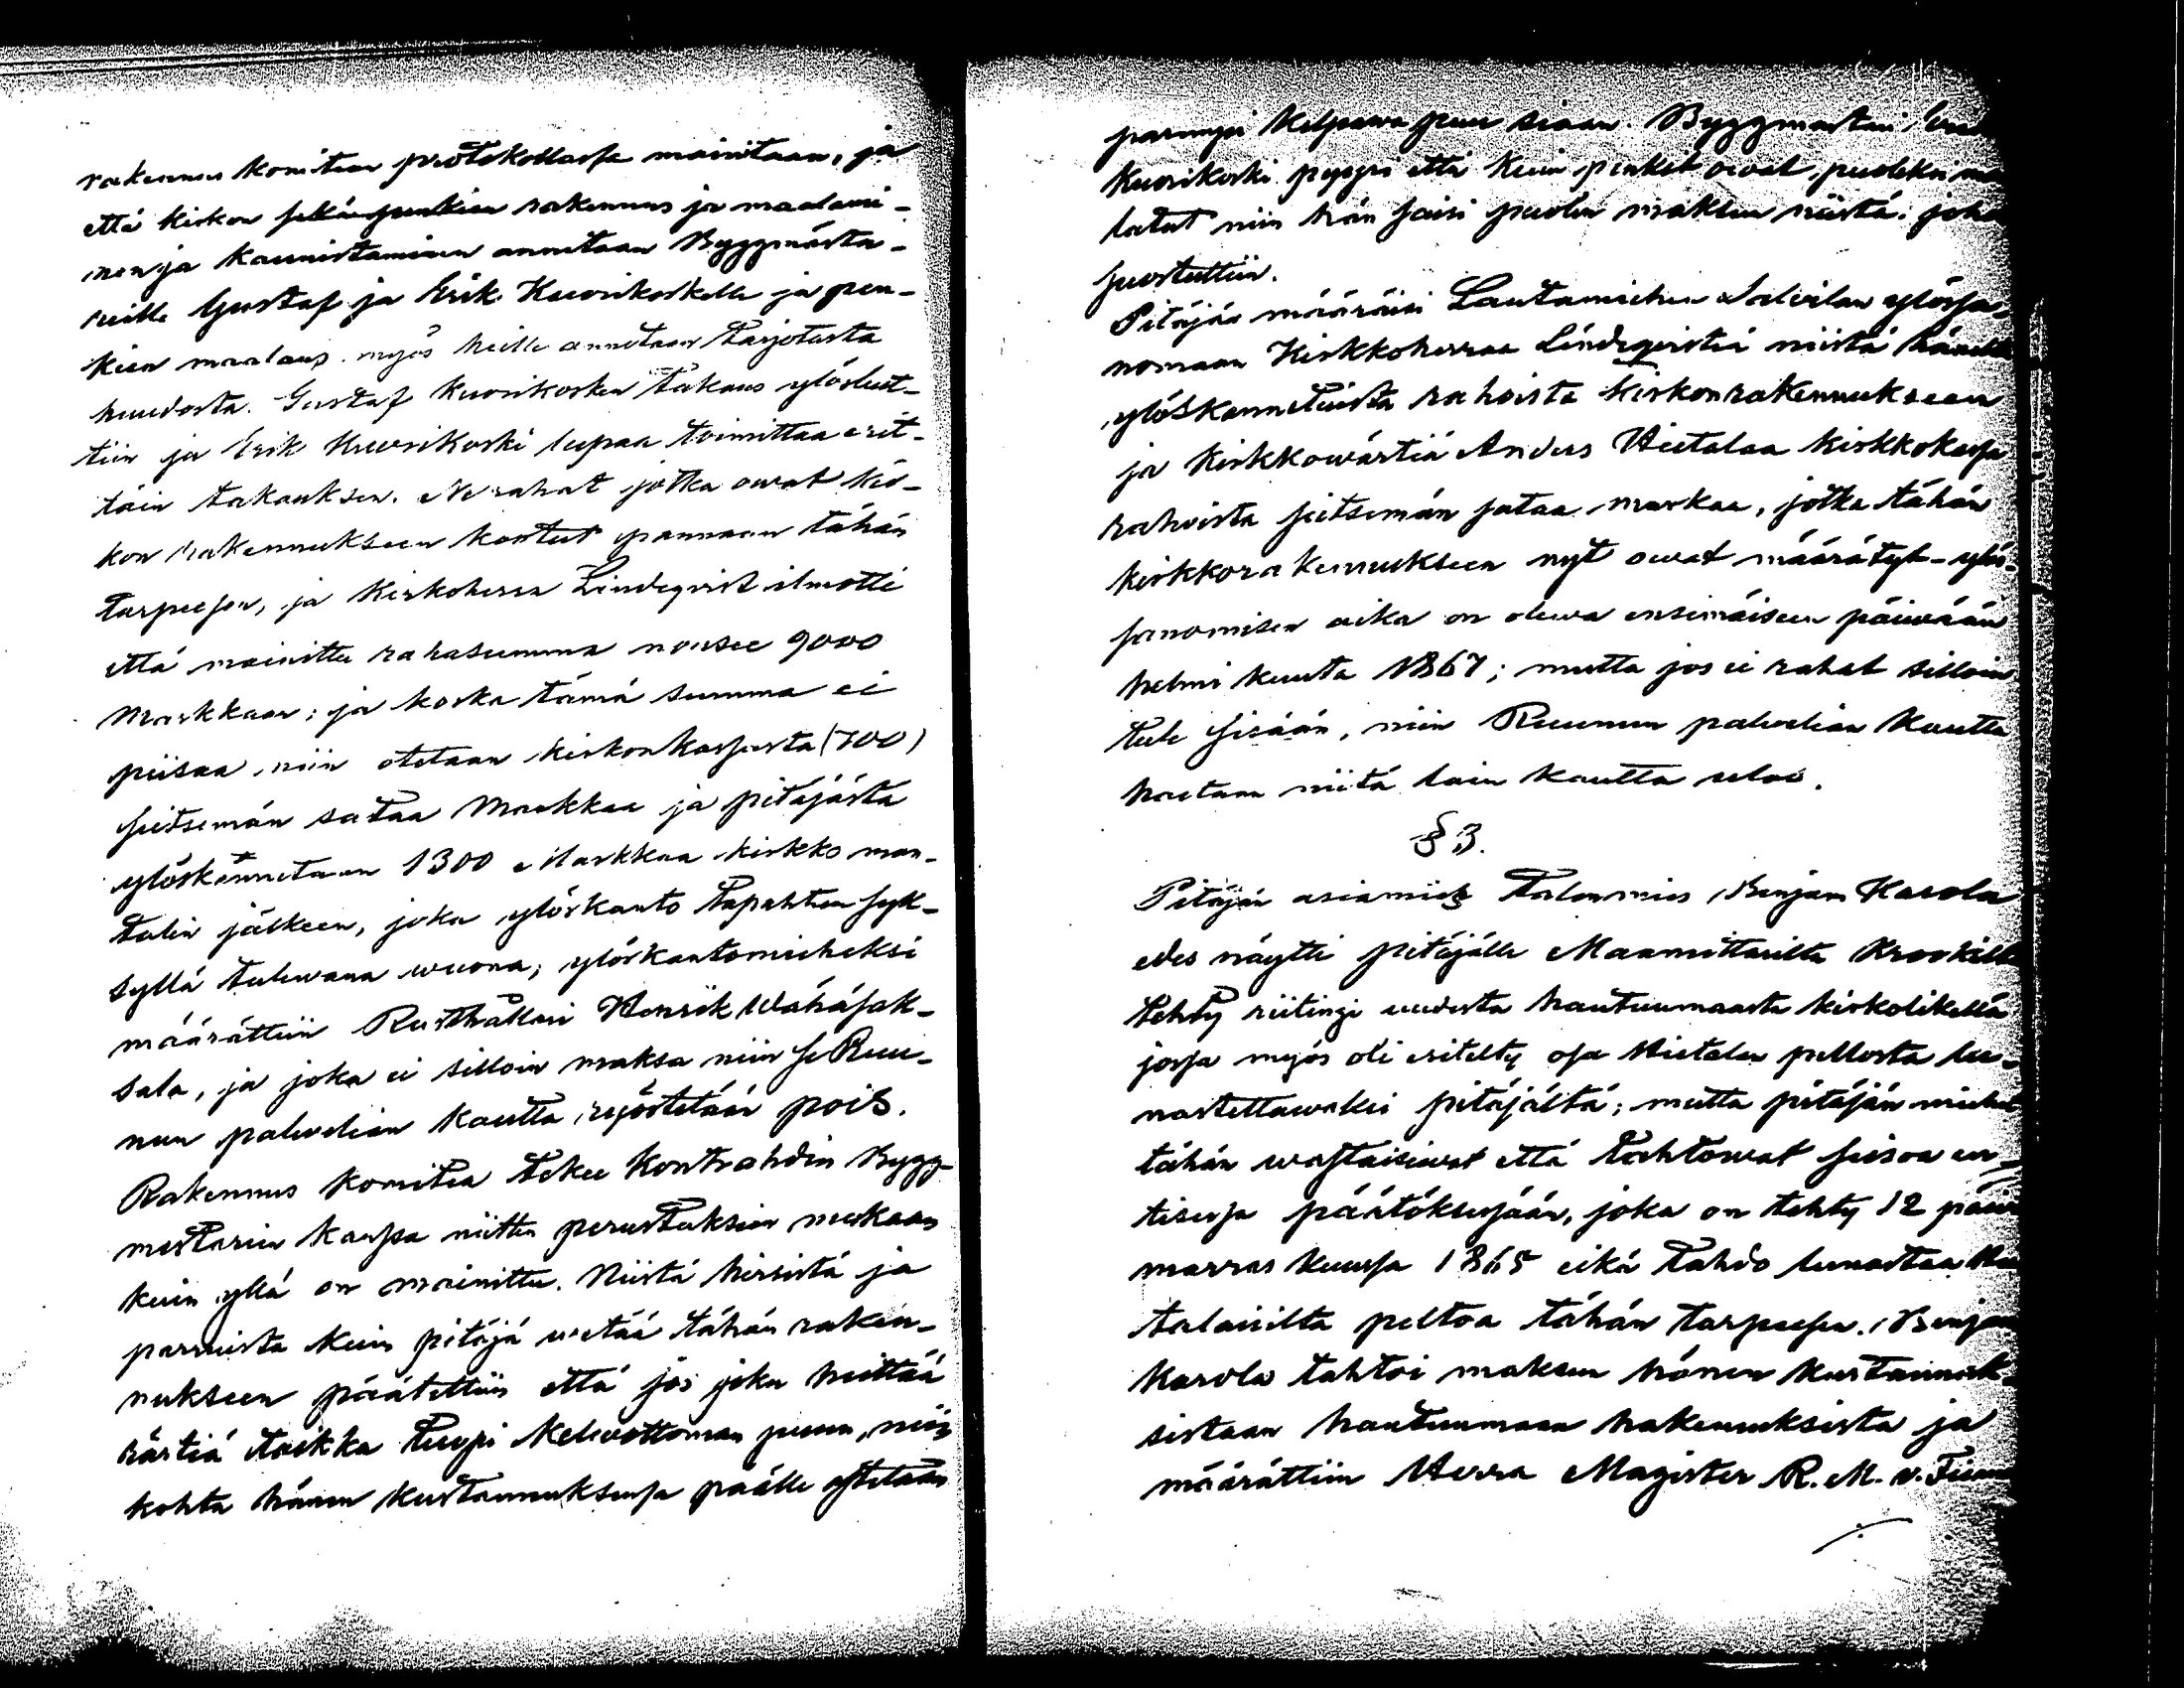 rakennus komitean protokollassa mainitaan, ja
että kirkon sekä penkien rakennus ja maalami-
nen ja kaunistaminen annetaan Byggmästa-
reille Gustaf ja Erik Kuorikoskelle ja pen-
kien maalaus myös heille annetaan tarjotusta
huudosta. Gustaf Kuorikosken takaus ylösluet-
tiin ja Erik Kuorikoski lupaa toimittaa erit-
täin takauksen. Ne rahat jotka owat kir-
kon rakennukseen kootut pannaan tähän
tarpeesen, ja Kirkoherra Lindeqvist ilmotti
että mainittu rahasumma nousee 9000
Markkaan; ja koska tämä summa ei
piisaa, niin otetaan kirkonkassasta (700)
seitsemän sataa Markkaa ja pitäjästä
ylöskannetaan 1300 Markkaa kirkko man-
talin jälkeen, joka ylöskanto tapahtuu syk-
syllä tulewana wuona; ylöskantomieheksi
määrättiin Rusthållari Henrik Wähäsak-
sala, ja joka ei silloin maksa niin se Ruu-
nun palvelian kautta ryöstetään pois.
Rakennus komitea tekee kontrahdin Bygg-
mestarien kanssa niitten perustuksien mukaan
kuin yllä on mainittu. Niistä hirsistä ja
parruista kuin pitäjä wetää tähän raken-
nukseen päätettiin että jos joku heittää
rästiä taikka tuopi kelwottoman puun, niin
kohta hänen kustannuksensa päälle ostetaan
parempi kelpaawa puu siaan. Byggmestari
Kuorikoski pyysi että kuin penket owat puoleksi
latut niin hän saisi puolen maksun niistä; joho
suostuttiin.
Pitäjäs määräisi Lautamiehen Salvilan ylössa-
nomaan Kirkkoherraa Lindeqvistiä niistä häneltä
ylöskannetuista rahoista kirkonrakennukseen
ja Kirkkowärtiä Anders Hietalaa kirkkokassa
rahoista seitsemän sataa markaa, jotka tähän
kirkkorakennukseen nyt owat määrätyt - ylös-
sanomisen aika on olewa ensimäiseen päiwään
helmi kuuta 1867; mutta jos ei rahat silloin
tule sisään, niin Ruunun palvelian kautta
haetaan niitä lain kautta ulos.
§ 3.
Pitäjän asiamies Talonmies Benjam Karola
edes näytti pitäjälle Maamittarilta Krookilta
tehty riitingi uudesta hautuumaasta kirkolikellä
jossa myös oli eritelty osa Hietalan pellosta lu-
nastettawaksi pitäjältä; mutta pitäjän miehet
tähän wastaisiwat että tahtowat seisoa en-
tisessa päätöksesään, joka on tehty 12 päiw
marras kuussa 1865 eikä tahdo lunastaa
talaiselta peltoa tähän tarpeesen. Benjam
Karola tahtoi maksun hänen kustannuk-
sistaan hautuumaan hakemuksista ja
määrättiin Herra Magister R. M. v.